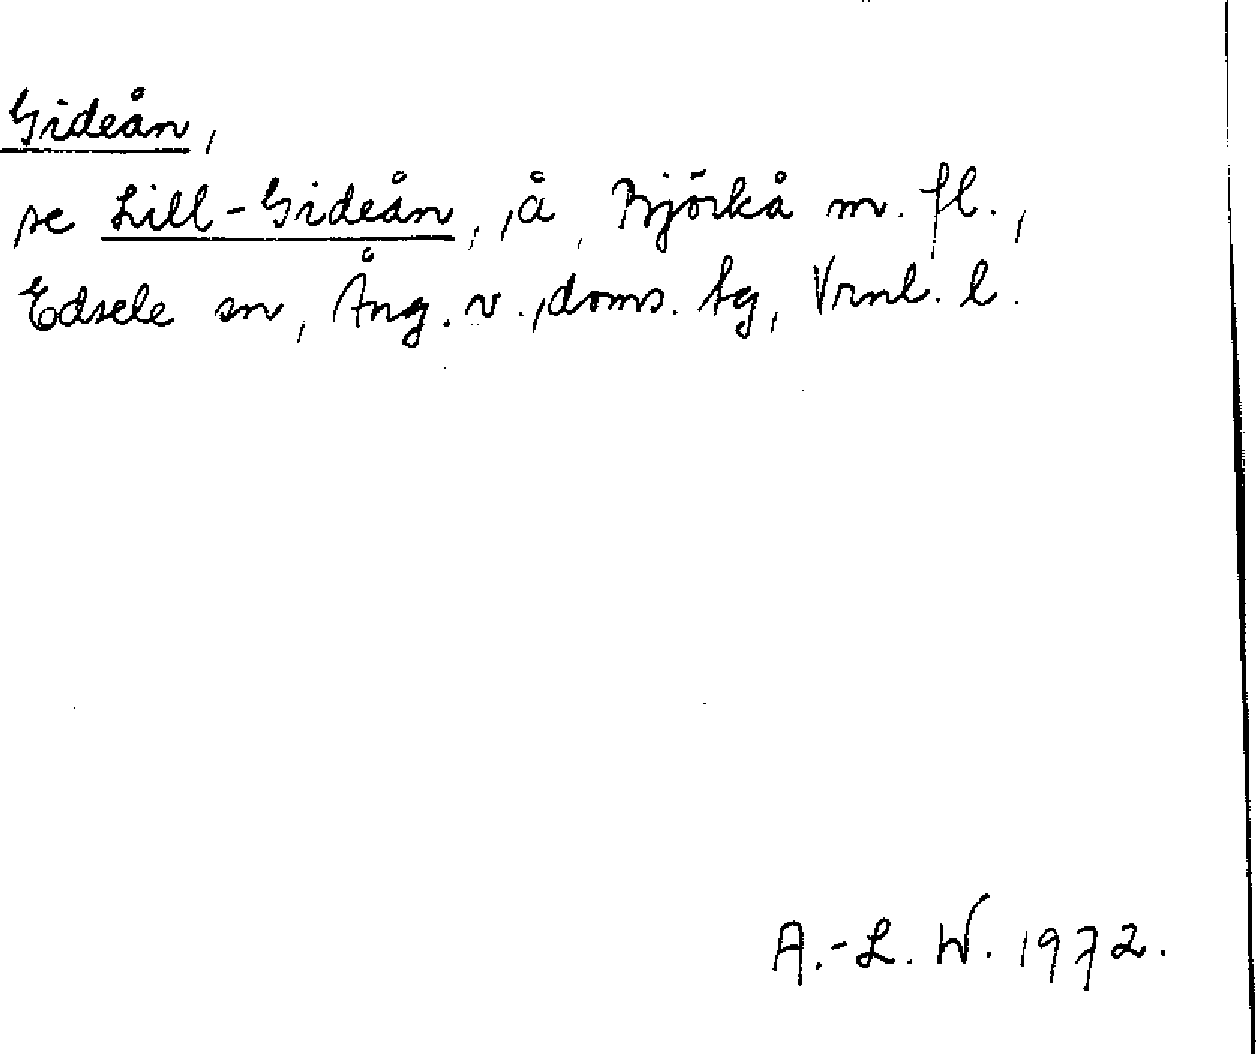 Gideån,
se Lill-Gideån, å, Björkå m. fl.,
Edsele sn, Ång. v. doms. tg, Vrnl. l.
A.-L. W. 1972.